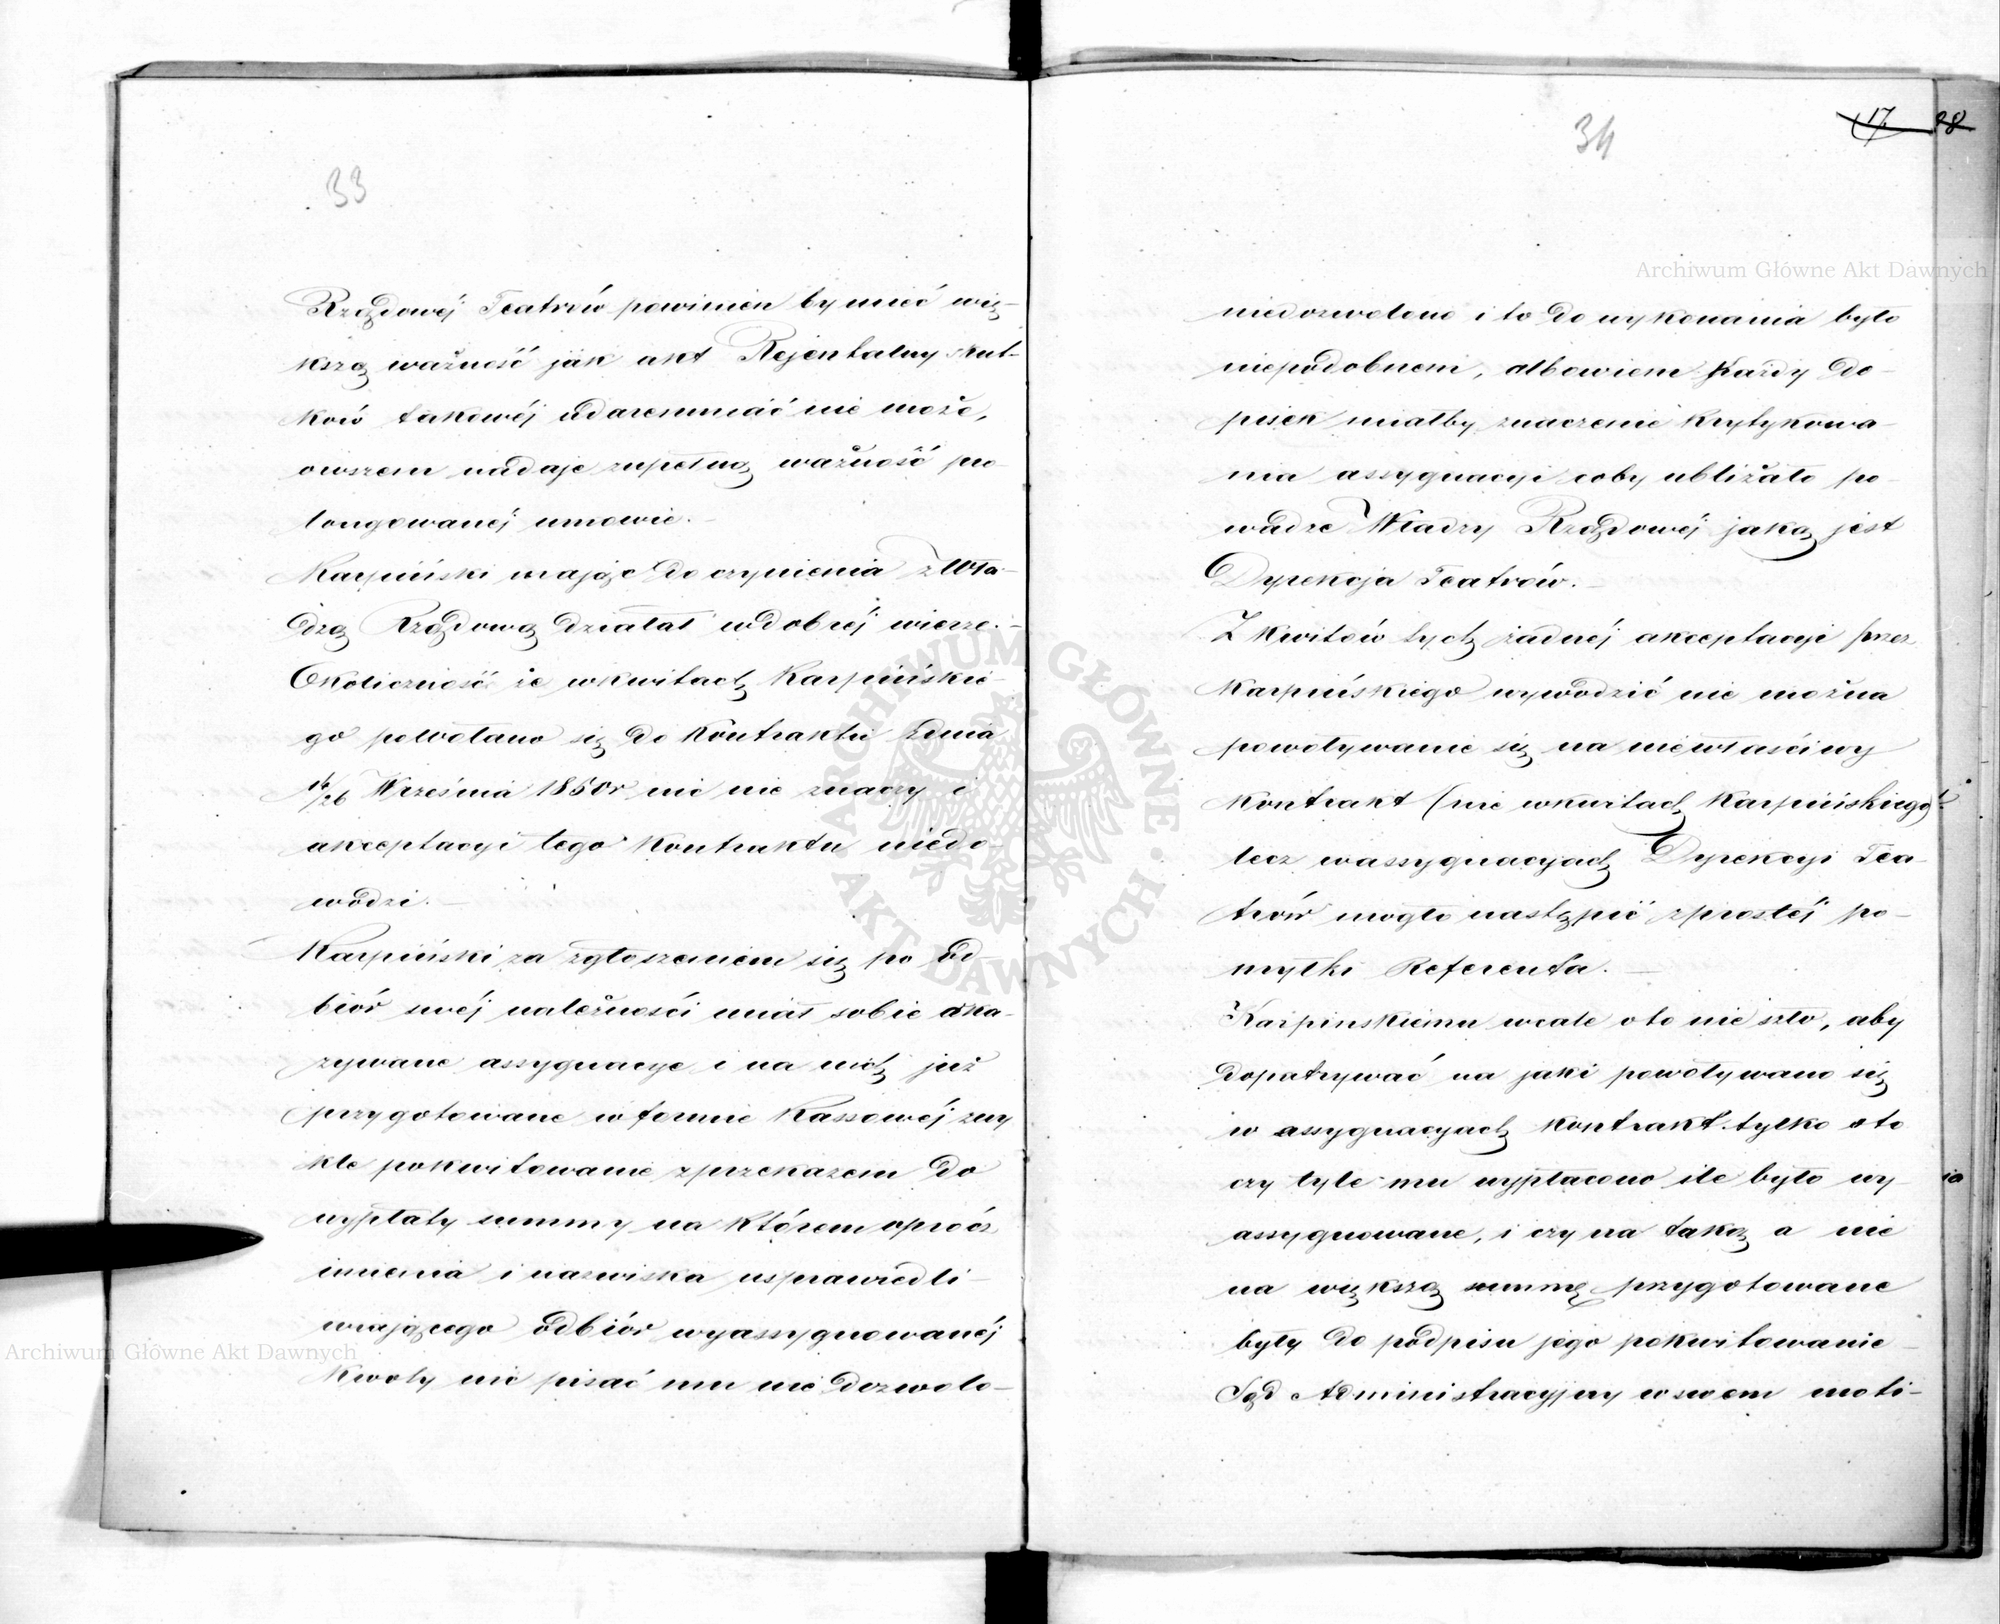 33
Rządowéj Teatrów powinien by mieć wię-
kszą ważność jak akt Rejentalny skut-
ków takowéj udaremniać nie może,
owszem nadaje zupełną ważność pro-
longowanéj umowie.-
Karpiński mając do czynienia z Wła-
dzą Rządową działał w dobréj wierze.-
Okoliczność że w kwitach Karpińskie-
go powołano się do Kontraktu z dnia
14/26 Września 1850r nic nie znaczy i
akceptacyi tego Kontraktu niedo-
wodzi.-
Karpiński za zgłoszeniem się po od-
biór swéj należności miał sobie oka-
zywane assygnacye i na nich już
przygotowane w formie Kassowéj zwy
kłe pokwitowanie z przekazem do
wypłaty summy na którem oprócz
imienia i nazwiska usprawiedli-
wiającego odbiór wyassygnowanéj
Kwoty nic pisać mu nie dozwolo-
34
17 28
niedozwolono i to do wykonania było
niepodobnem, albowiem każdy do-
pisek miałby znaczenie Krytykowa-
nia assygnacyi coby ubliżało po-
wadze Władzy Rządowéj jaką jest
Dyrekcja Teatrów.-
Z Kwitów tych żadnéj akceptacyi przez
Karpińskiego wywodzić nie można
powoływanie się na niewłaściwy
Kontrakt (nie w kwitach Karpińskiego)
lecz w assygnacyach Dyrekcyi Tea-
trów mogło nastąpić z prostéj po-
myłki Referenta.-
Karpinskiemu wcale o to nie szło, aby
dopatrywać na jaki powoływano się
w assygnacyach Kontrakt tylko o to
czy tyle mu wypłacono ile było wy-
assygnowane, i czy na taką a nie
na większą summę przygotowane
były do podpisu jego pokwitowanie
Sąd Administracyjny w swem moti-
Archiwum Główne Akt Dawnych
Archiwum Główne Akt Dawnych
ARCHIWUM GŁÓWNE · AKT DAWNYCH ·